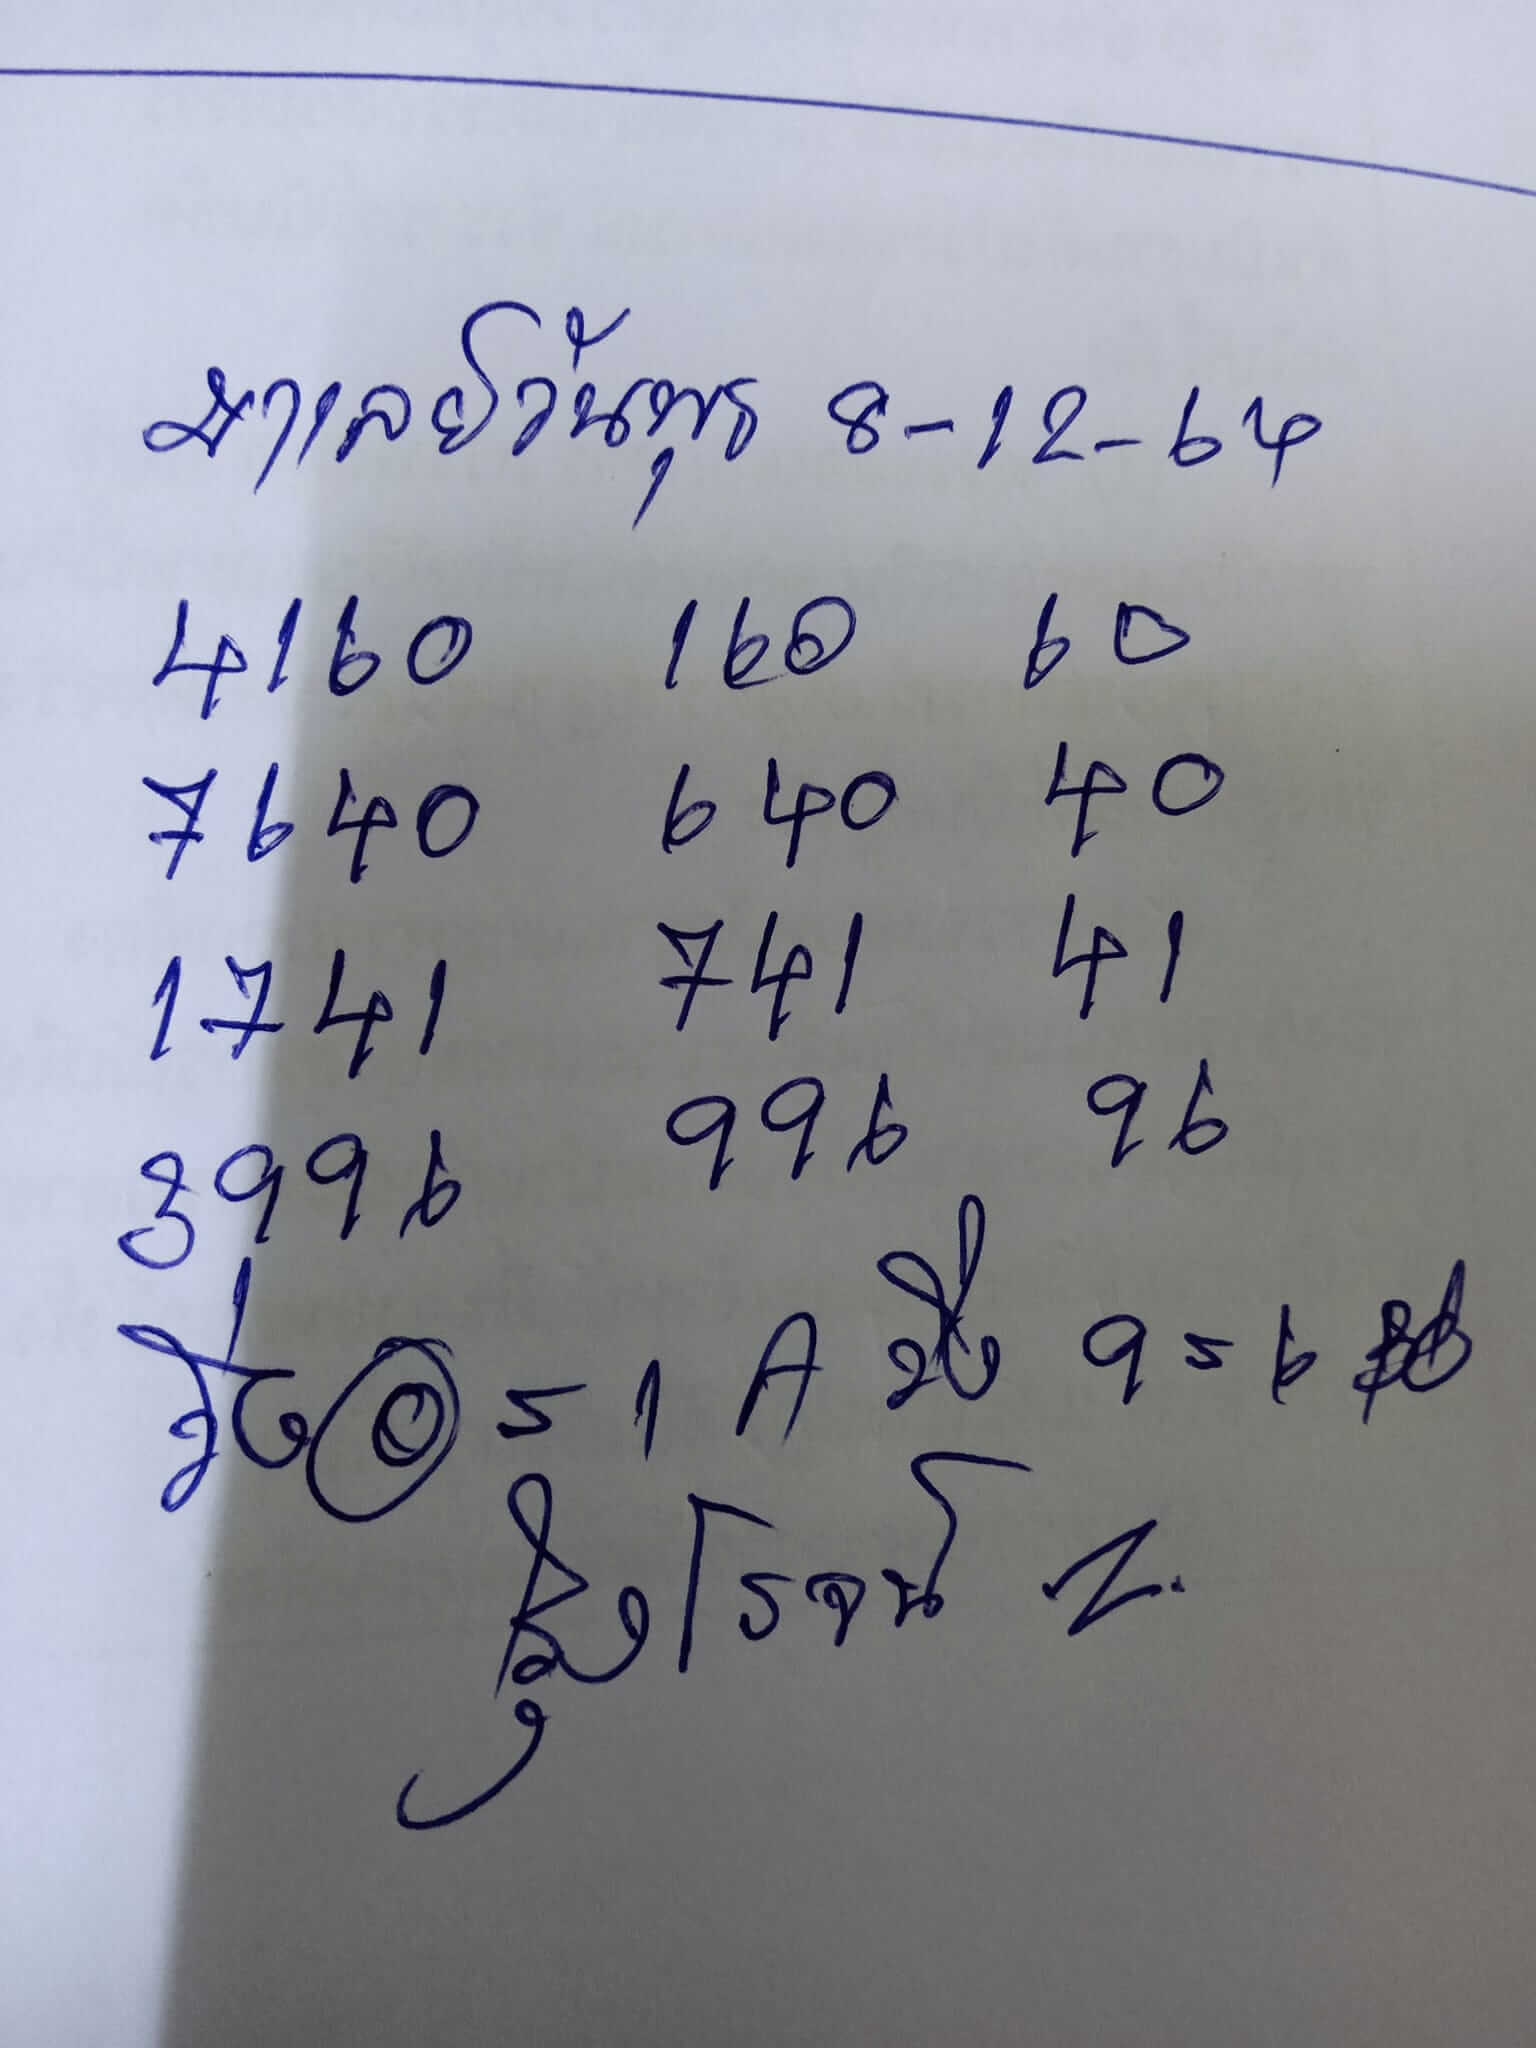 มาเลย์วันพุธ 8-12-64
4160 160 60
7640 640 40
1741 741 41
3996 996 96
วิ่ง 0 = 1 A 9 = 6
โรจน์